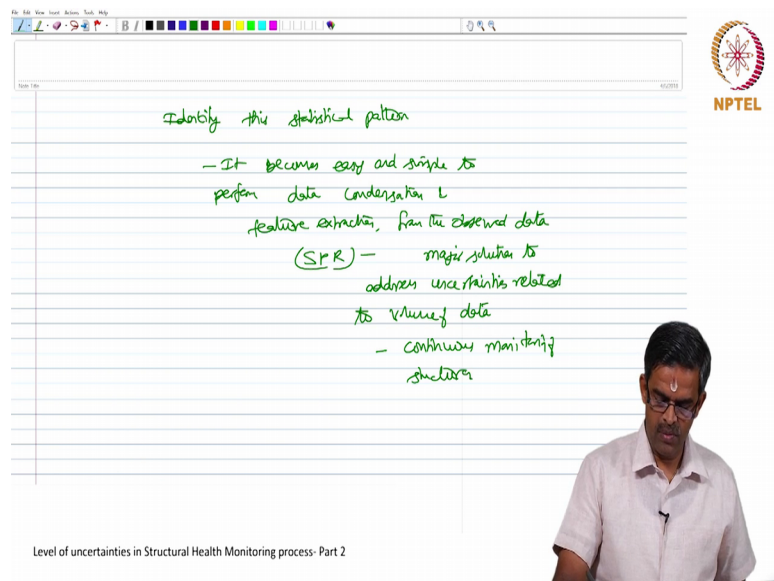 File Edit View Insert Actions Tools Help
NPTEL
Identify this statistical pattern
- It becomes easy and simple to
perform data condensation &
feature extraction, from the observed data
(SPR) - major solution to
address uncertainties related
to volume of data
- continuous monitoring of
structures
Level of uncertainties in Structural Health Monitoring process- Part 2